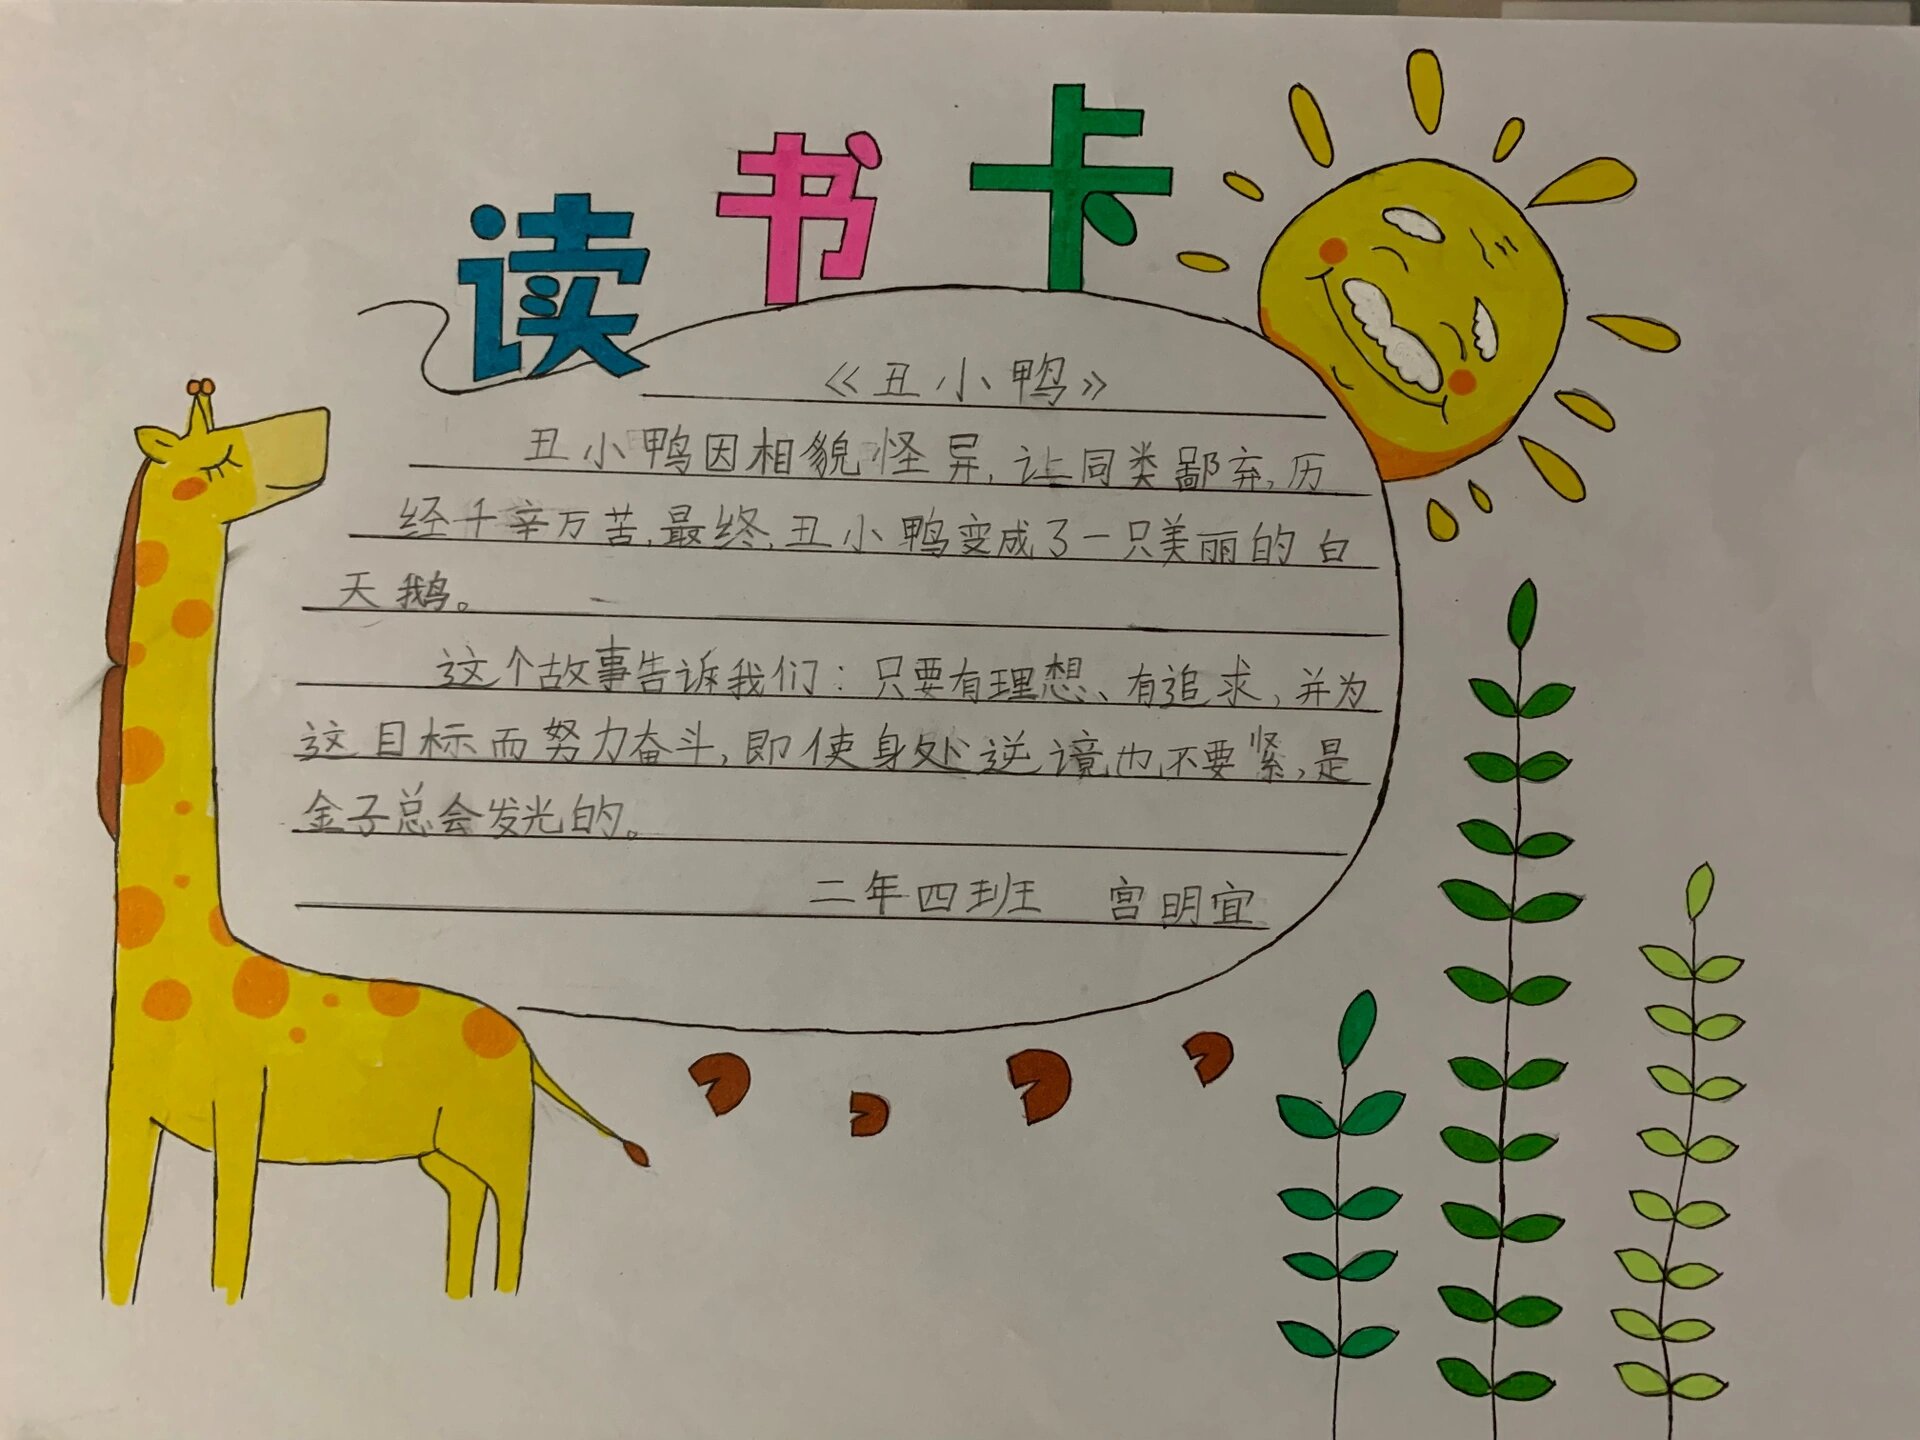 读书卡
《丑小鸭》
丑小鸭因相貌怪异,让同类鄙弃,历
经千辛万苦,最终,丑小鸭变成了一只美丽的白
天鹅。
这个故事告诉我们:只要有理想、有追求,并为
这目标而努力奋斗,即使身处逆境也不要紧,是
金子总会发光的。
二年四班 宫明宜